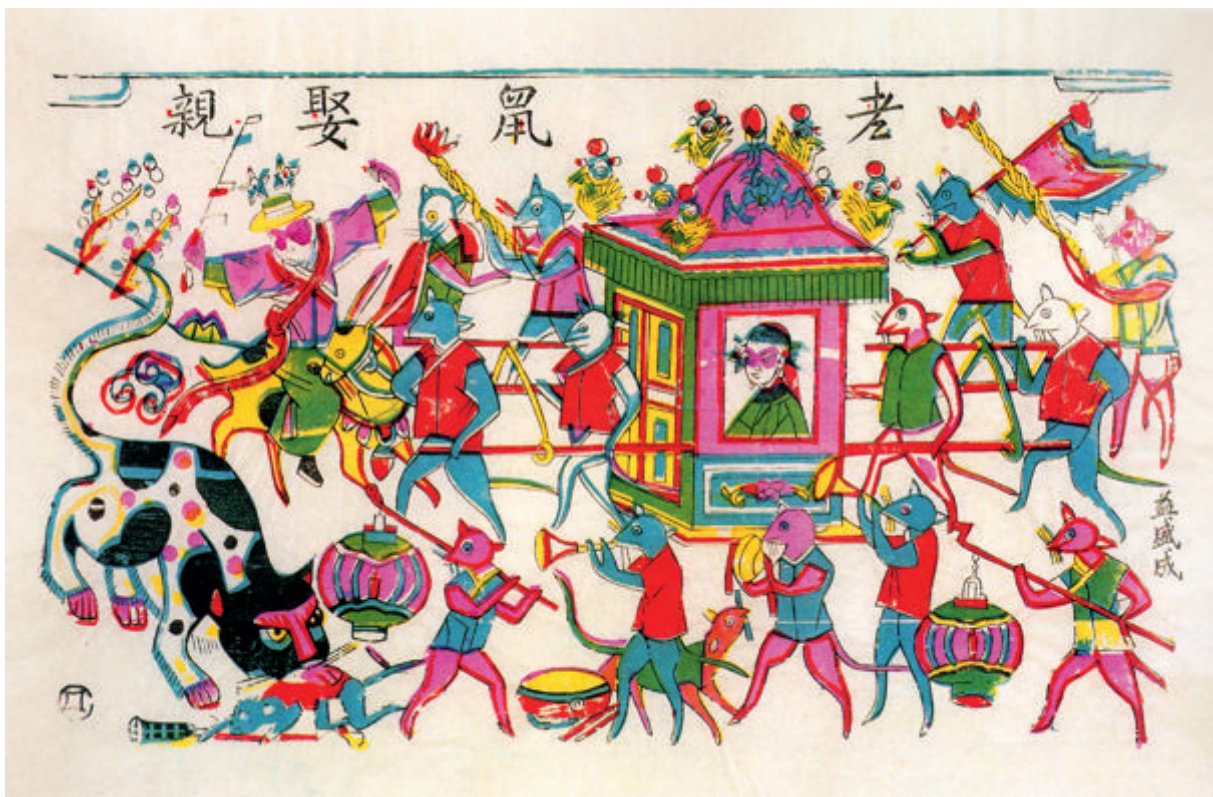 老鼠娶親
益盛成